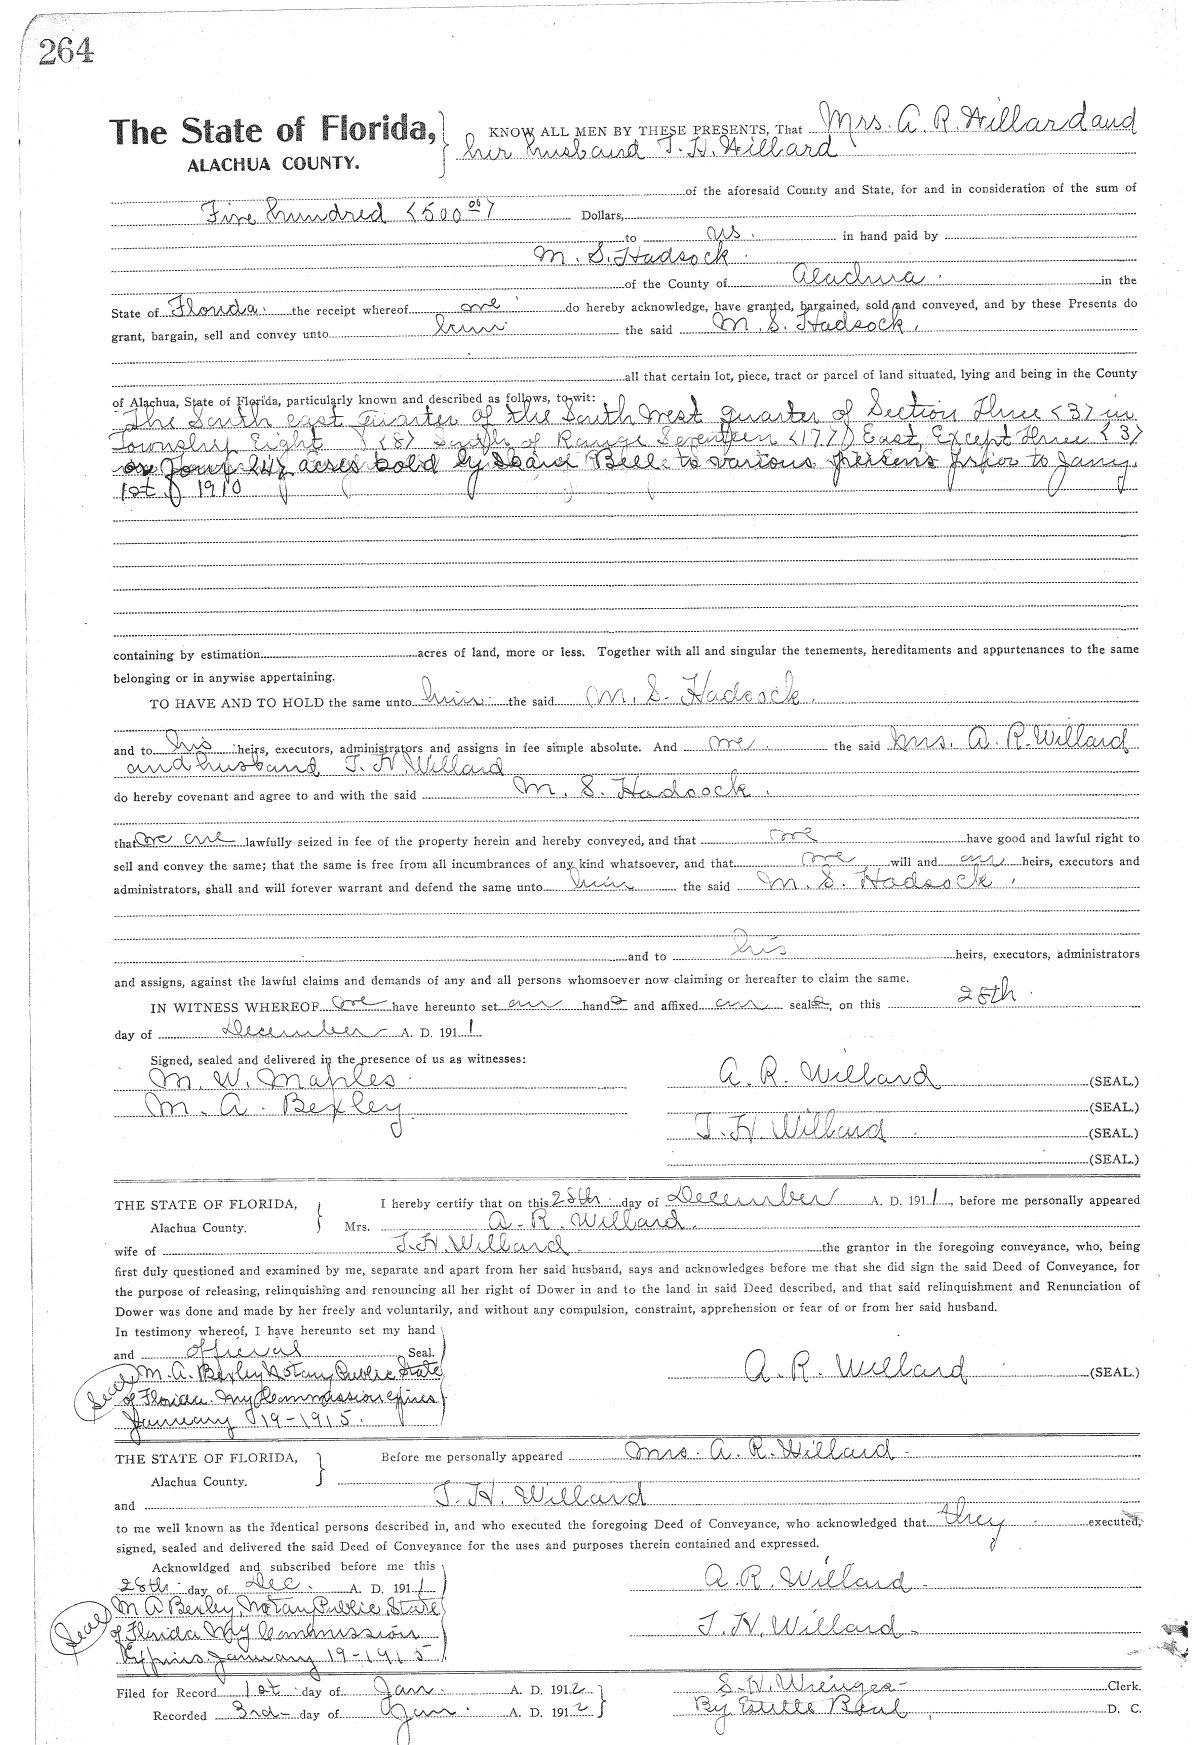 264
The State of Florida, KNOW ALL MEN BY THESE PRESENTS, That Mrs. A. R. Willard and
ALACHUA COUNTY. her husband T. H. Willard
of the aforesaid County and State, for and in consideration of the sum of
Five hundred <500 00> Dollars,
to us. in hand paid by
M. S. Hadsock.
of the County of Alachua. in the
State of Florida. the receipt whereof we do hereby acknowledge, have granted, bargained, sold and conveyed, and by these Presents do
grant, bargain, sell and convey unto him the said M. S. Hadsock.
all that certain lot, piece, tract or parcel of land situated, lying and being in the County
of Alachua, State of Florida, particularly known and described as follows, to wit:
The South east quarter of the South west quarter of Section Three <3> in
Township Eight <8> South of Range Seventeen <17> East, Except three <3>
or four <4> acres sold by Bell to various persons prior to Jany.
1st 1910
containing by estimation acres of land, more or less. Together with all and singular the tenements, hereditaments and appurtenances to the same
belonging or in anywise appertaining.
TO HAVE AND TO HOLD the same unto him the said M. S. Hadsock.
and to his heirs, executors, administrators and assigns in fee simple absolute. And we the said Mrs. A. R. Willard
and husband T. H. Willard
do hereby covenant and agree to and with the said M. S. Hadsock.
that we are lawfully seized in fee of the property herein and hereby conveyed, and that we have good and lawful right to
sell and convey the same; that the same is free from all incumbrances of any kind whatsoever, and that we will and our heirs, executors and
administrators, shall and will forever warrant and defend the same unto him the said M. S. Hadsock.
and to his heirs, executors, administrators
and assigns, against the lawful claims and demands of any and all persons whomsoever now claiming or hereafter to claim the same.
IN WITNESS WHEREOF we have hereunto set our hands and affixed our seals, on this 28th
day of December A. D. 1911
Signed, sealed and delivered in the presence of us as witnesses:
M. W. Maples. A. R. Willard (SEAL.)
M. A. Bexley. (SEAL.)
T. H. Willard (SEAL.)
(SEAL.)
THE STATE OF FLORIDA, I hereby certify that on this 28th day of December A. D. 1911, before me personally appeared
Alachua County. Mrs. A. R. Willard.
wife of T. H. Willard. the grantor in the foregoing conveyance, who, being
first duly questioned and examined by me, separate and apart from her said husband, says and acknowledges before me that she did sign the said Deed of Conveyance, for
the purpose of releasing, relinquishing and renouncing all her right of Dower in and to the land in said Deed described, and that said relinquishment and Renunciation of
Dower was done and made by her freely and voluntarily, and without any compulsion, constraint, apprehension or fear of or from her said husband.
In testimony whereof, I have hereunto set my hand
and official Seal.
M. A. Bexley Notary Public State A. R. Willard (SEAL)
Seal of Florida. My Commission expires
January 19-1915.
THE STATE OF FLORIDA, Before me personally appeared Mrs. A. R. Willard
Alachua County.
and T. H. Willard
to me well known as the identical persons described in, and who executed the foregoing Deed of Conveyance, who acknowledged that they executed,
signed, sealed and delivered the said Deed of Conveyance for the uses and purposes therein contained and expressed.
Acknowldged and subscribed before me this
28th day of Dec. A. D. 1911 A. R. Willard
M A Bexley, Notary Public, State
Seal of Florida My Commission T. H. Willard
Expires January 19-1915
Filed for Record 1st day of Jan. A. D. 1912 S. H. Wienges Clerk.
Recorded 3rd day of Jan. A. D. 1912 By Estelle D. C.